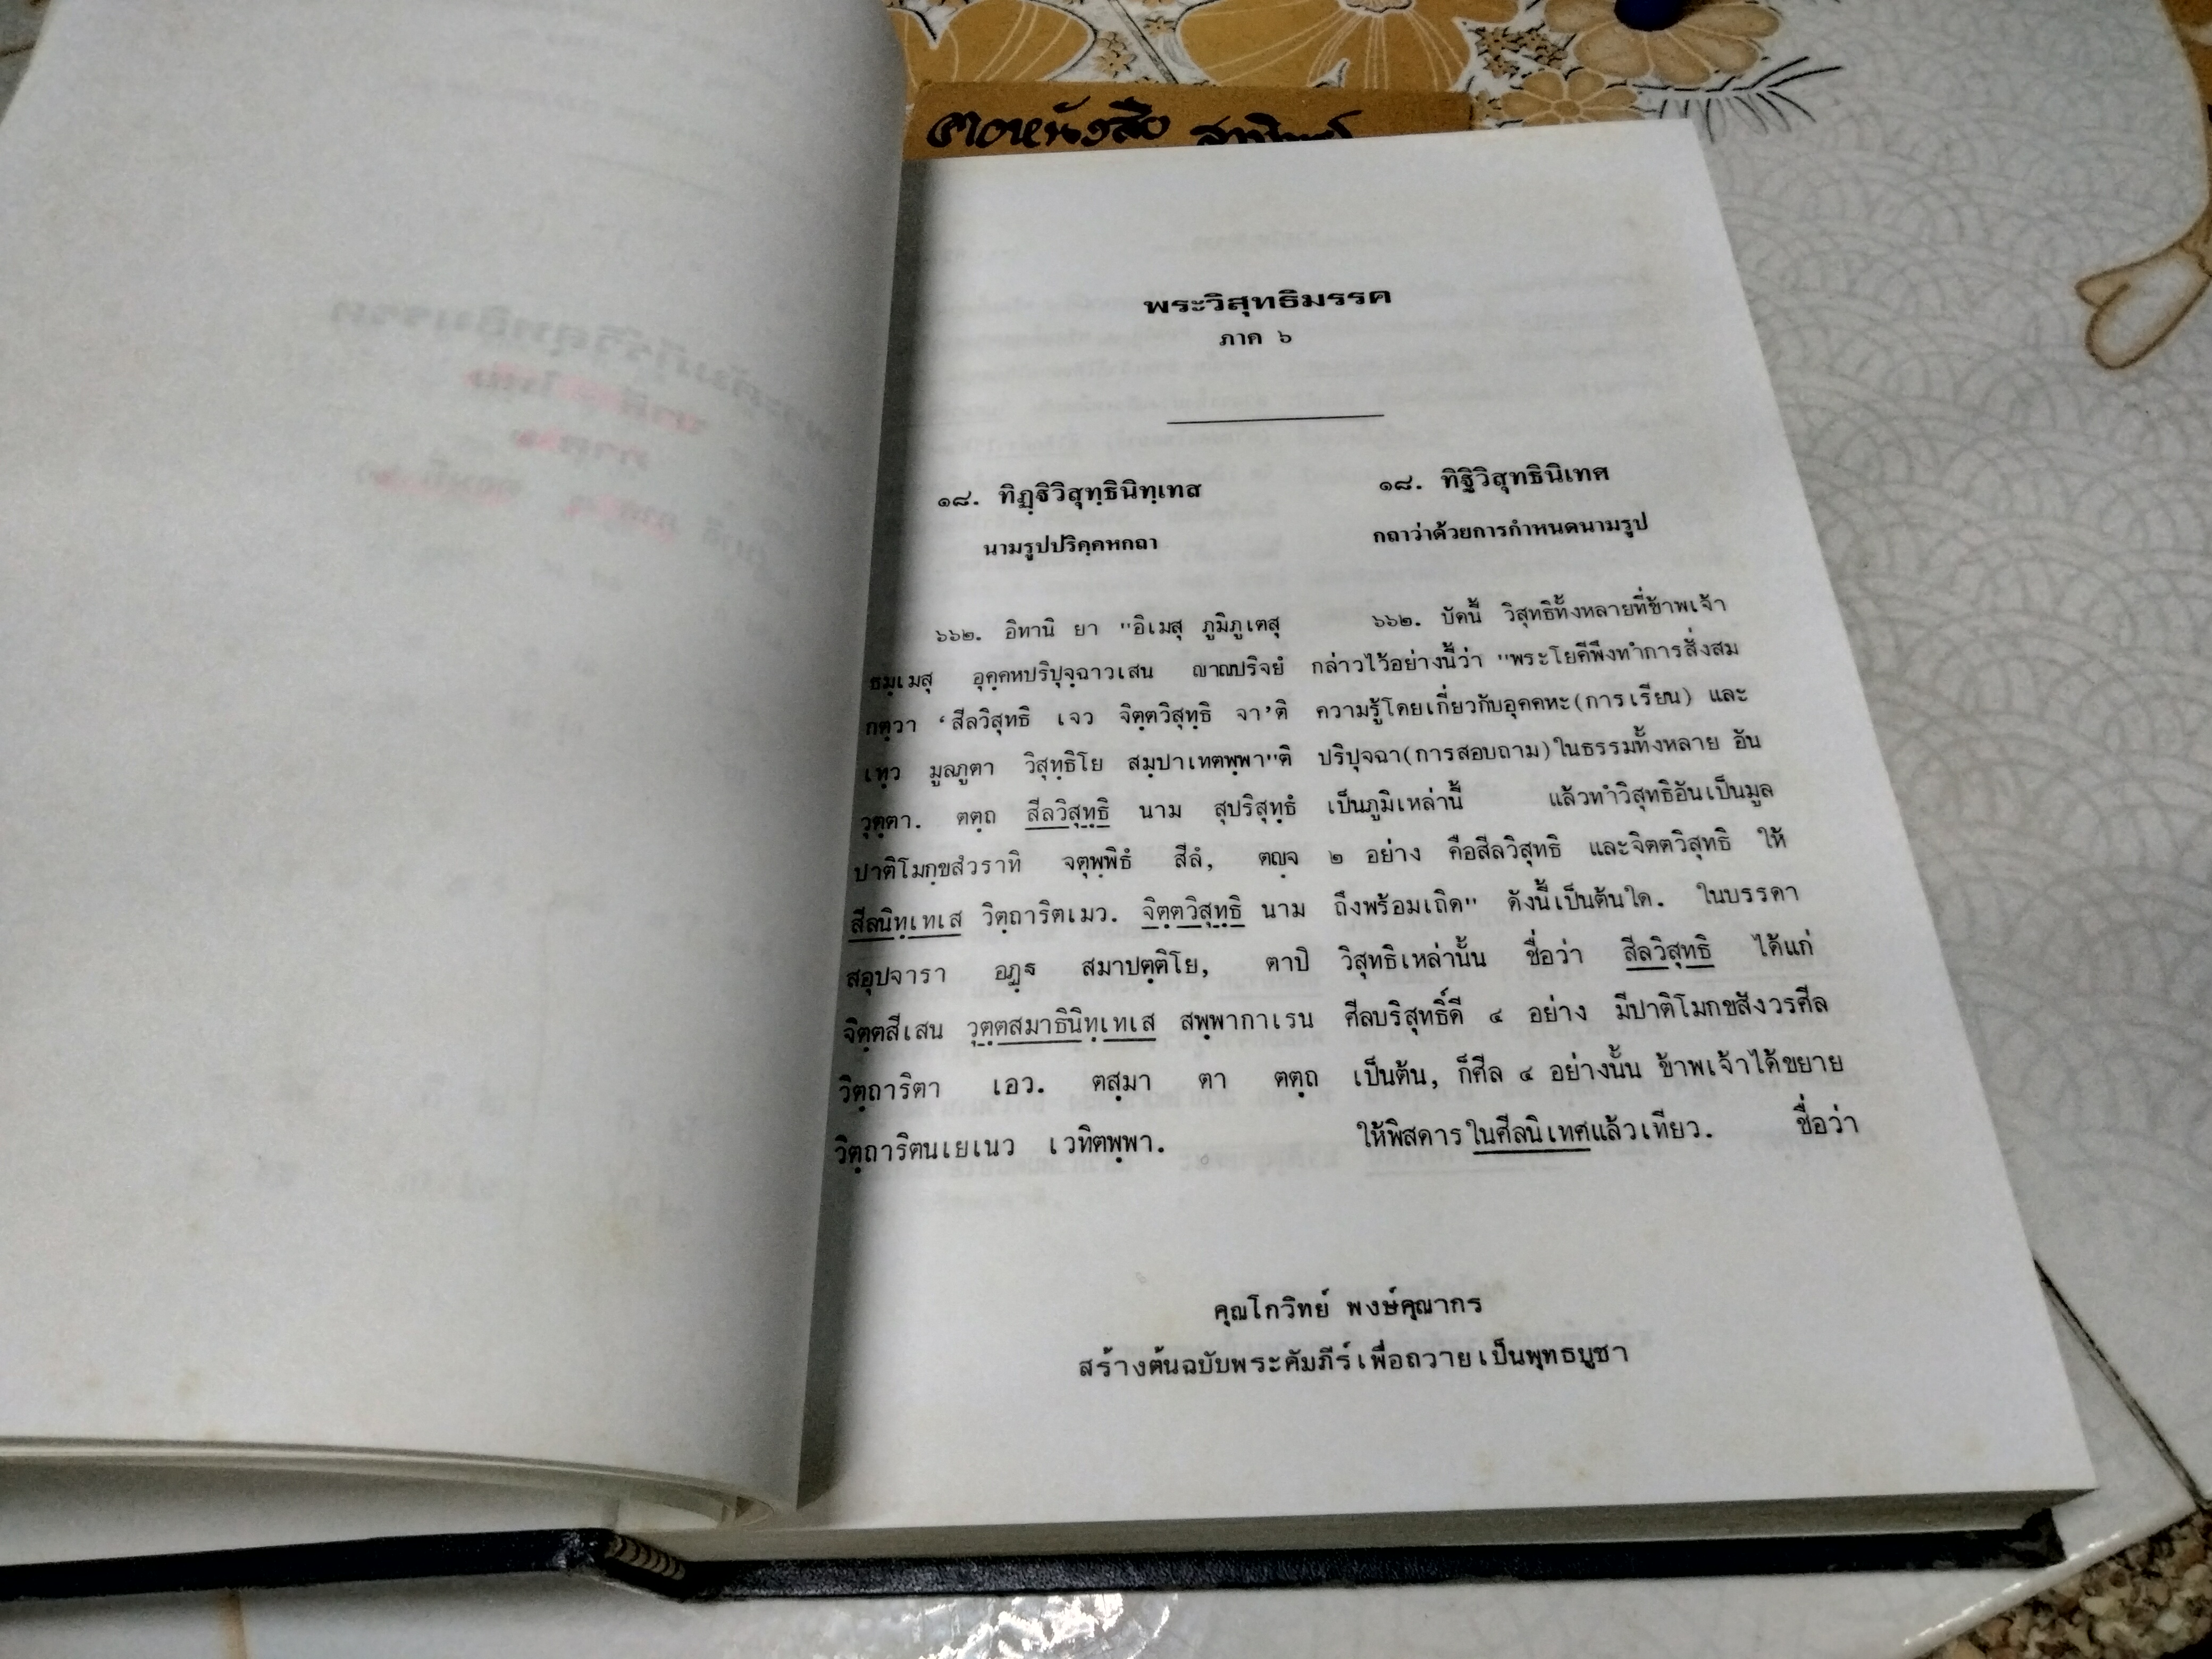 พระวิสุทธิมรรค
ภาค ๖
๑๘. ทิฏฺฐิวิสุทฺธินิทฺเทส
นามรูปปริคฺคหกถา
๖๖๒. อิทานิ ยา "อิเมสุ ภูมิภูเตสุ
ธมฺเมสุ อุคฺคหปริปุจฺฉาวเสน ญาณปริจยํ
กตฺวา 'สีลวิสุทธิ เจว จิตฺตวิสุทฺธิ จา'ติ
เทฺว มูลภูตา วิสุทฺธิโย สมฺปาเทตพฺพา"ติ
วุตฺตา. ตตฺถ สีลวิสุทฺธิ นาม สุปริสุทฺธํ
ปาติโมกฺขสํวราทิ จตุพฺพิธํ สีลํ, ตญฺจ
สีลนิทฺเทเส วิตฺถาริตเมว. จิตฺตวิสุทฺธิ นาม
สอุปจารา อฏฺฐ สมาปตฺติโย, ตาปิ
จิตฺตสีเสน วุตฺตสมาธินิทฺเทเส สพฺพากาเรน
วิตฺถาริตา เอว. ตสฺมา ตา ตตฺถ
วิตฺถาริตนเยเนว เวทิตพฺพา.
๑๘. ทิฐิวิสุทธินิเทศ
กถาว่าด้วยการกำหนดนามรูป
๖๖๒. บัดนี้ วิสุทธิทั้งหลายที่ข้าพเจ้า
กล่าวไว้อย่างนี้ว่า "พระโยคีพึงทำการสั่งสม
ความรู้โดยเกี่ยวกับอุคคหะ(การเรียน) และ
ปริปุจฉา(การสอบถาม)ในธรรมทั้งหลาย อัน
เป็นภูมิเหล่านี้ แล้วทำวิสุทธิอันเป็นมูล
๒ อย่าง คือสีลวิสุทธิ และจิตตวิสุทธิ ให้
ถึงพร้อมเถิด" ดังนี้เป็นต้นใด. ในบรรดา
วิสุทธิเหล่านั้น ชื่อว่า สีลวิสุทธิ ได้แก่
ศีลบริสุทธิ์ดี ๔ อย่าง มีปาติโมกขสังวรศีล
เป็นต้น, ก็ศีล ๔ อย่างนั้น ข้าพเจ้าได้ขยาย
ให้พิสดารในศีลนิเทศแล้วเทียว. ชื่อว่า
คุณโกวิทย์ พงษ์คุณากร
สร้างต้นฉบับพระคัมภีร์เพื่อถวายเป็นพุทธบูชา